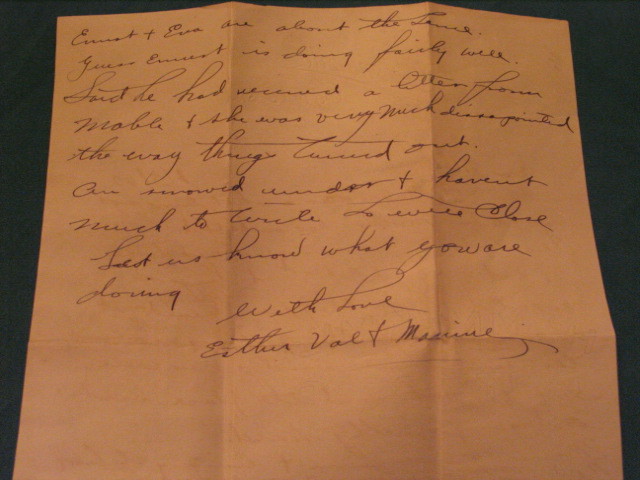 Ernest + Eva are about the Same.
Guess Ernest is doing fairly well.
Said he had received a letter from
Mable + she was very much dissapointed
the way things turned out.
Am snowed under + havent
much to write So will Close
Let us know what you are
doing
With Love
Esther Val + Maxine